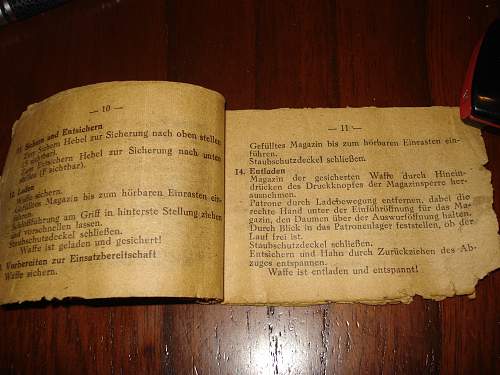 — 10 —
Sichern und Entsichern
Zum Sichern Hebel zur Sicherung nach oben stellen
(S sichtbar).
Zum Entsichern Hebel zur Sicherung nach unten
stellen (F sichtbar).
Laden
Waffe sichern.
Gefülltes Magazin bis zum hörbaren Einrasten ein-
führen.
Schloßführung am Griff in hinterste Stellung ziehen
und vorschnellen lassen.
Staubschutzdeckel schließen.
Waffe ist geladen und gesichert!
Vorbereiten zur Einsatzbereitschaft
Waffe sichern.
— 11 —
Gefülltes Magazin bis zum hörbaren Einrasten ein-
führen.
Staubschutzdeckel schließen.
14. Entladen
Magazin der gesicherten Waffe durch Hinein-
drücken des Druckknopfes der Magazinsperre her-
ausnehmen.
Patrone durch Ladebewegung entfernen, dabei die
rechte Hand unter der Einführöffnung für das Ma-
gazin, den Daumen über der Auswurföffnung halten.
Durch Blick in das Patronenlager feststellen, ob der
Lauf frei ist.
Staubschutzdeckel schließen.
Entsichern und Hahn durch Zurückziehen des Ab-
zuges entspannen.
Waffe ist entladen und entspannt!